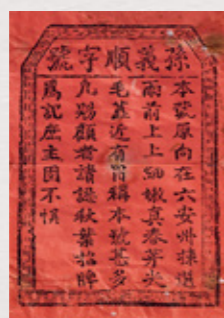 孫義順字號
本號原向在六安州揀選
雨前上上細嫩真春芽尖
毛蓋近有冒稱本號甚多
凡賜顧者請認秋葉招牌
爲記庶主固不悞